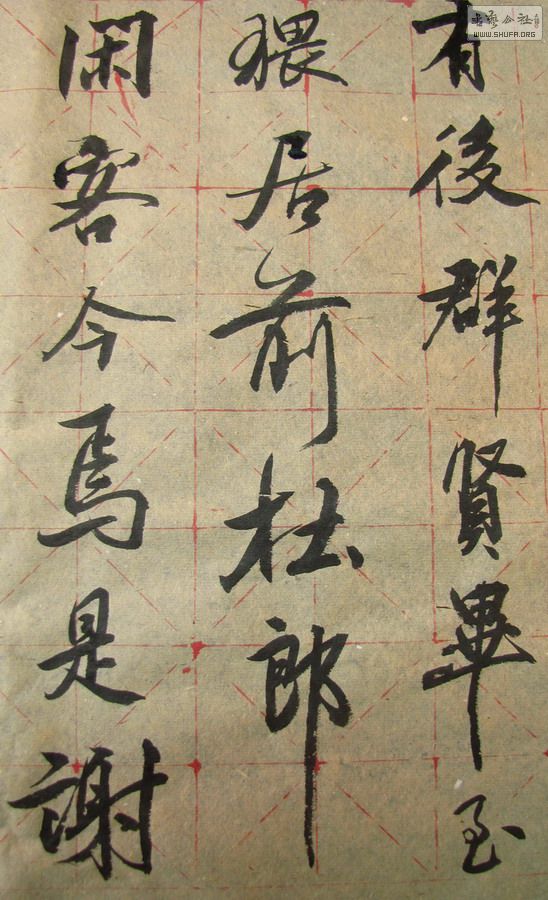 有後群賢畢至
猥居前杜郎
閑客今焉是謝
书艺公社
WWW.SHUFA.ORG